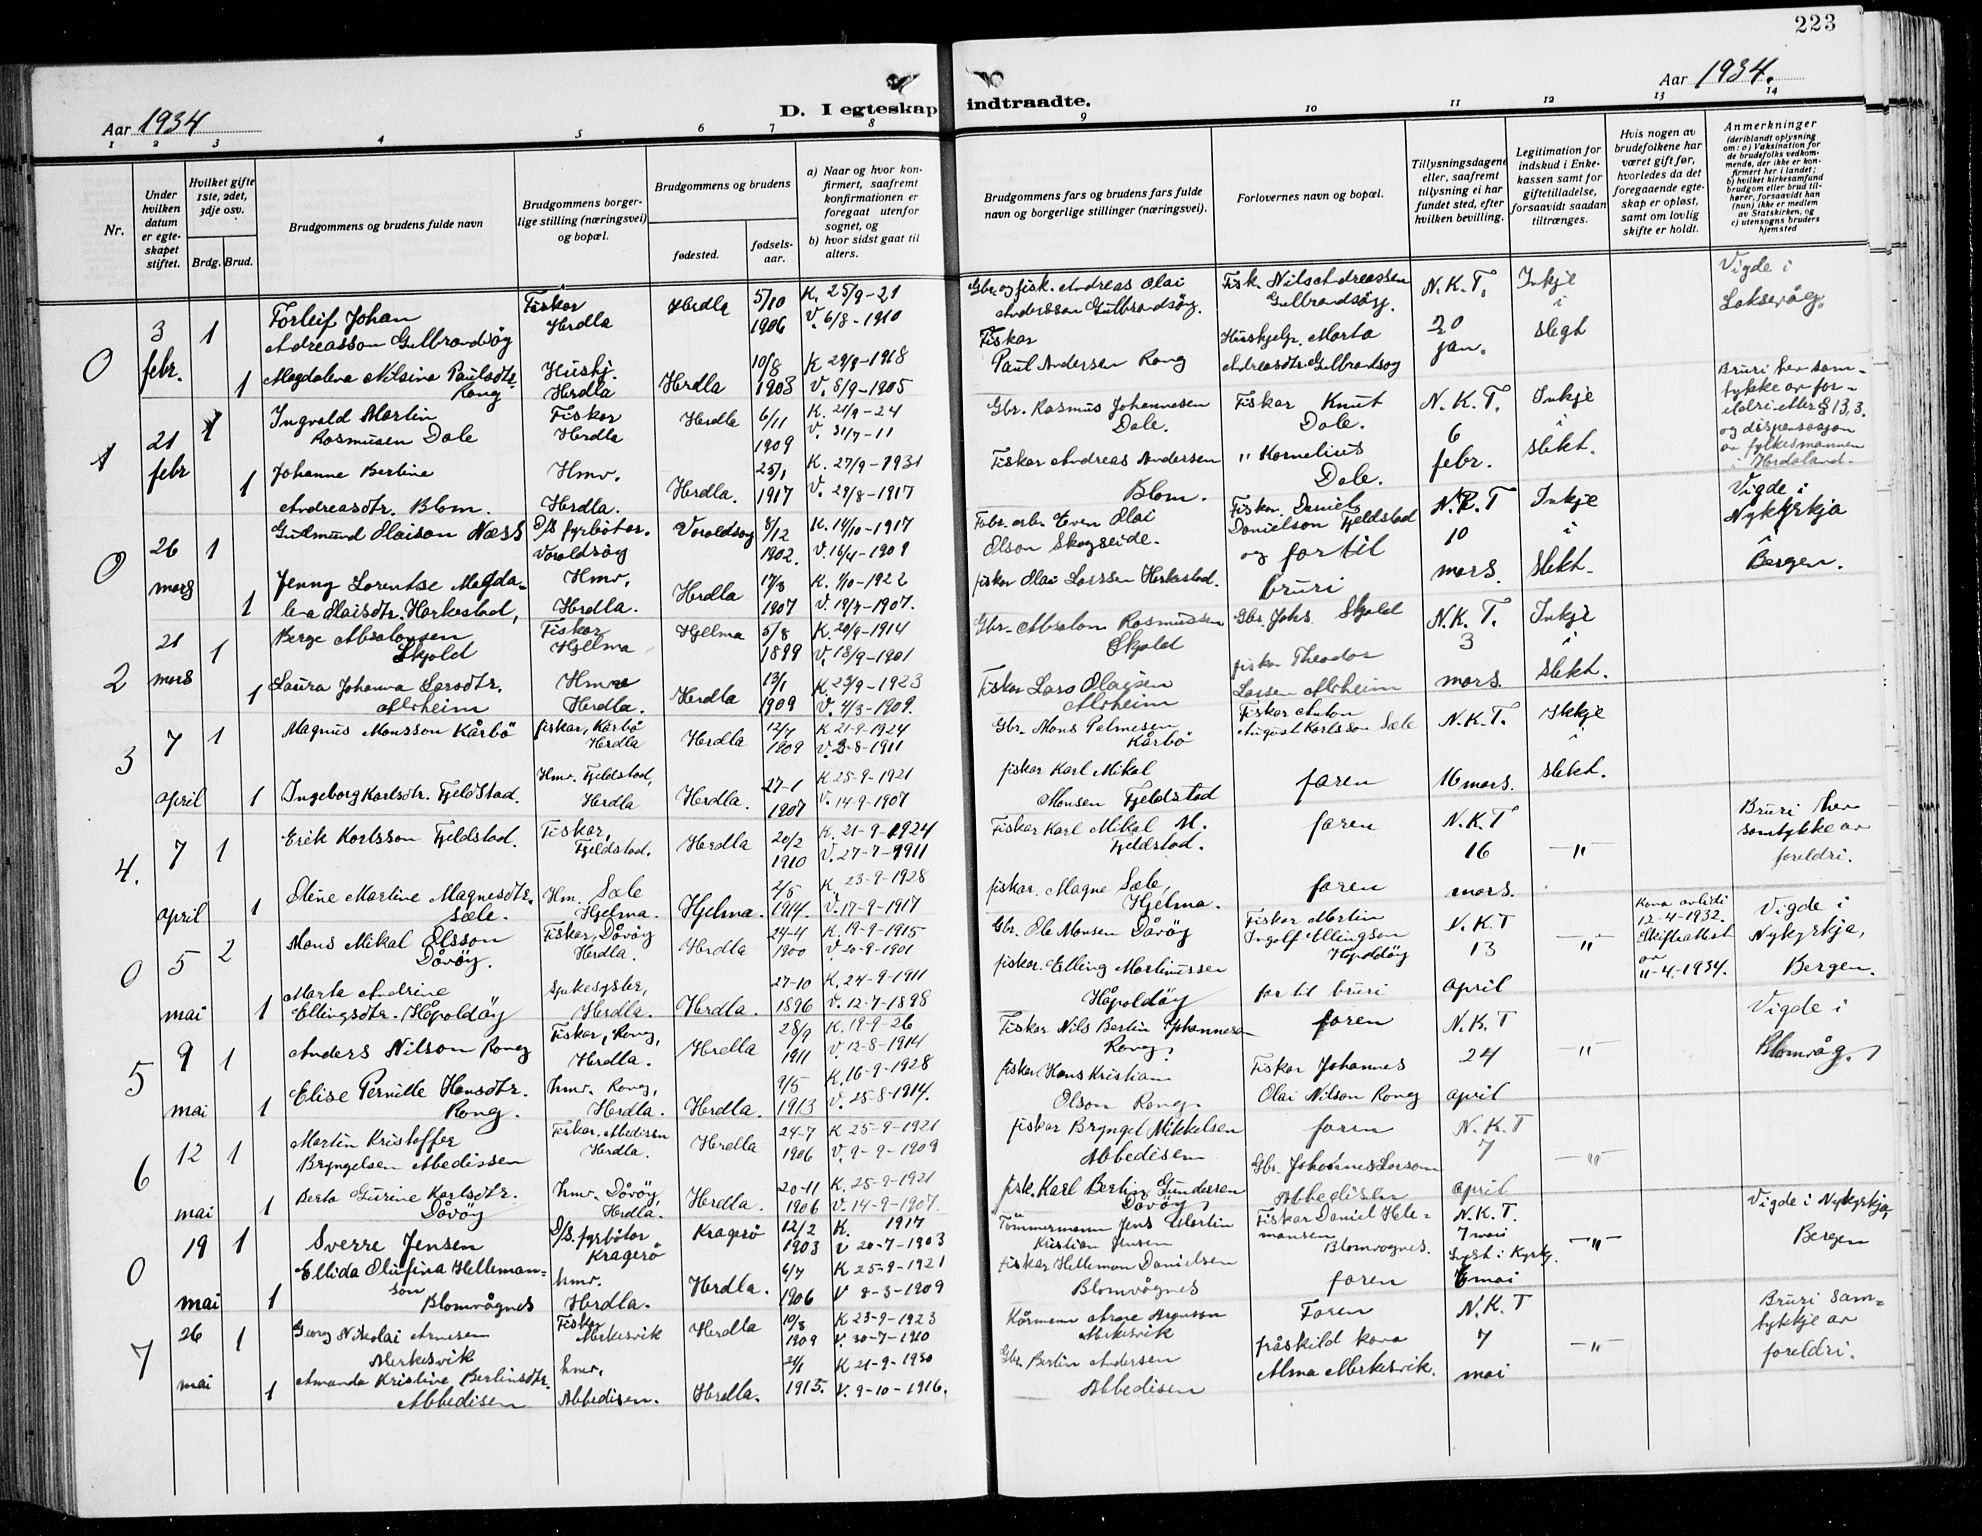 223
Aar 1934
D. I egteskap indtraadte.
Aar 1934.
1 2 3 4 5 6 7 8 9 10 11 12 13 14
Nr.
Under hvilken datum er egteskapet stiftet.
Hvilket gifte 1ste, 2det, 3dje osv.
Brdg. Brud.
Brudgommens og brudens fulde navn
Brudgommens borgerlige stilling (næringsvei) og bopæl.
Brudgommens og brudens
fødested.
fødselsaar.
a) Naar og hvor konfirmert, saafremt konfirmationen er foregaat utenfor sognet, og
b) hvor sidst gaat til alters.
Brudgommens fars og brudens fars fulde navn og borgerlige stillinger (næringsvei).
Forlovernes navn og bopæl.
Tillysningsdagene eller, saafremt tillysning ei har fundet sted, efter hvilken bevilling.
Legitimation for indskud i Enkekassen samt for giftetilladelse, forsaavidt saadan tiltrænges.
Hvis nogen av brudefolkene har været gift før, hvorledes da det foregaaende egteskap er opløst, samt om lovlig skifte er holdt.
Anmerkninger
(deriblandt oplysning om: a) Vaksination for de brudefolks vedkommende, der ikke er konfirmert her i landet; b) hvilket kirkesamfund brudgom eller brud tilhører, forsaavidt han (hun) ikke er medlem av Statskirken, og c) utensogns bruders hjemsted
0 3 febr. 1
Torleif Johan
Andreasson Gulbrandsöy
Fiskar
Herdla
Herdla
5/10 1906
K. 25/9-21
V. 6/8-1910
Gbr. og fisk. Andreas Olai
Anderssen Gulbrandsöy.
Fisk. Nils Andreassen
Gulbrandsöy.
N.K.T.
20
jan.
Inkje
i
slegt
Vigde i
Laksevåg.
1 Magdalena Nilsina Paulsdtr.
Rong
Hushj.
Herdla
Herdla
10/8 1903
K 29/9-1918
V. 8/9-1905
Fiskar
Paul Andersen Rong
Hushjelp. Marta
Andreasdtr. Gulbrandsøy
1 21 febr 1
Ingvald Martin
Rasmusen Dale
Fiskar
Herdla
Herdla
6/11 1909
K. 21/9-24
V. 31/7-11
Gbr. Rasmus Johannesen
Dale.
Fiskar Knut
Dale.
N.K.T.
6
febr.
Inkje
i
slekt.
Bruri hev samtykke av foreldri etter § 13,3.
og dispensasjon
av fylkesmannen
i Hordaland.
1 Johanne Bertine
Andreasdtr. Blom.
Hmv.
Herdla.
Herdla.
25/1 1917
K. 27/9-1931
V. 29/8-1917
Fiskar Andreas Andersen
Blom.
" Kornelius
Dale.
0 26 mars 1
Gudmund Olaison Næss
D/S fyrbötar.
Voraldsøy
Voraldsøy
8/12 1902.
K. 14/10-1917
V. 18/4-1909
Fabr. arb. Even Olai
Olson Skogseide.
Fiskar. Daniel
Danielson Fjeldstad
og far til
bruri
N.K.T
10
mars.
Inkje
i
slekt.
Vigde i
Nykyrkja
i
Bergen.
1 Jenny Lorentse Magdalena Olaisdtr. Harkestad,
Hmv.
Herdla.
Herdla
17/3 1907
K. 1/10-1922
V. 19/7-1907.
fiskar Olai Larssen Harkestad.
2 21 mars 1
Berge Absalonsen
Skjold
Fiskar
Hjelma
Hjelma
5/8 1899
K. 20/9-1914
V. 18/9-1901
Gbr. Absalon Rasmussen
Skjold
Gbr. Johs. Skjold
N.K.T.
3
mars.
Inkje
i
slekt.
1 Laura Johanna Larsdtr.
Alvheim
Hmv.
Herdla.
Herdla
13/1 1909
K. 23/9-1923
V. 4/3-1909.
Fiskar Lars Olaisen
Alvheim
fiskar Theodor
Larsen Alvheim
3 7 april 1
Magnus Monsson Kårbö
fiskar, Kårbö
Herdla
Herdla
12/7 1909
K 21-9-1924
V. 3-8-1911
Gbr. Mons Palmesen
Kårbö
Fiskar Anton
August Karlsson Sæle
N.K.T.
16 mars.
Ikkje
i
slekt.
1 Ingeborg Karlsdtr. Fjeldstad.
Hmv. Fjeldstad,
Herdla
Herdla.
27-1 1907
K 25-9-1921
V. 14-9-1907
fiskar Karl Mikal
Monsen Fjeldstad
faren
4. 7 april 1
Erik Karlsson Fjeldstad.
Fiskar,
Fjeldstad.
Herdla
20/2 1910
K. 21-9-1924
V. 27-7-1911
Fiskar Karl Mikal M.
Fjeldstad.
faren
N.K.T
16
mars.
—"—
Bruri hev
samtykke av
foreldri.
1 Oline Martine Magnesdtr.
Sæle.
Hm. Sæle
Hjelma.
Hjelma.
2/5 1914.
K. 23-9-1928
V. 17-9-1917
fiskar. Magne Sæle,
Hjelma.
faren
0 5 mai 2
Mons Mikal Olsson
Dåvöy.
Fiskar, Dåvöy
Herdla.
Herdla
24-4 1900
K. 19-9-1915
V 20-9-1901
Gbr. Ole Monsen Dåvöy
Fiskar Martin
Ingolf Ellingson
Håpoldöy
N.K.T
13
april
"
Kona avlidi
12-4-1932.
Skifteattest
av
11-4-1934.
Vigde i
Nykyrkja,
Bergen.
1 Marta Andrine
Ellingsdtr. Håpoldöy
Sjukesyster,
Herdla.
Herdla.
27-10 1896
K. 24-9-1911
V. 12-7-1898
fiskar. Elling Martinussen
Håpoldöy
far til bruri
5 9 mai 1
Anders Nilson Rong
Fiskar, Rong,
Herdla.
Herdla
28/9 1911
K. 19-9-26
V. 12-8-1914
Fiskar Nils Bertin Johannesen
Rong.
faren
N.K.T
24
april
"
Vigde i
Blomvåg.
1 Elise Pernille Hansdtr.
Rong.
hmv. Rong,
Herdla.
Herdla.
9/5 1913
K. 16-9-1928
V. 25-8-1914.
fiskar Hans Kristian
Olson Rong.
Fiskar Johannes
Olai Nilson Rong
6 12 mai 1
Martin Kristoffer
Bryngelsen Abbedissen
Fiskar. Abedisen
Herdla.
Herdla
24-7 1906
K 25-9-1921
V. 9-9-1909
fiskar Bryngel Mikkelsen
Abbedisen
faren
N.K.T
7
april
—"—
1 Berta Gurine Karlsdtr.
Dåvöy
hmv. Dåvöy,
Herdla.
Herdla.
20-11 1906
K. 25-9-1921
V. 14-9-1907.
fisk. Karl Bertin Gundersen
Dåvöy,
Gbr. Johannes Larson
Abbedisen
0 19 mai 1
Sverre Jensen
D/S. fyrbötar
Kragerö
Kragerö
12/2 1903
K. 1917
V 20-7-1903
Tömmermann Jens Martin
Kristian Jensen
Fiskar Daniel Helemansen
Blomvognes.
N.K.T.
7 mai
Lyst i Kyrkj.
6 mai
—"—
Vigde i Nykyrkja,
Bergen
1 Ellida Olufina Hellemanson
Blomvågnes
hmv.
Herdla.
Herdla.
6/7 1906
K 25-9-1921
V 8-3-1909
fiskar Helleman Danielsen
Blomvågnes
faren
7 26 mai 1
Georg Nikolai Arnesen
Merkesvik
Fiskar
Merkesvik
Herdla
10/3 1909
K 23-9-1923
V. 30-7-1910
Arne
Merkesvik
Faren
N.K.T
7
mai
—"—
Bruri samtykkje av
foreldri.
1 Amanda Kristine Bertinsdtr.
Abbedisen
hmv,
Abbedisen.
Herdla.
24/1 1915.
K 21-9-1930
V. 9-10-1916.
Gbr. Bertin Andersen
Abbedisen
fråskild kona
Alma Merkesvik.